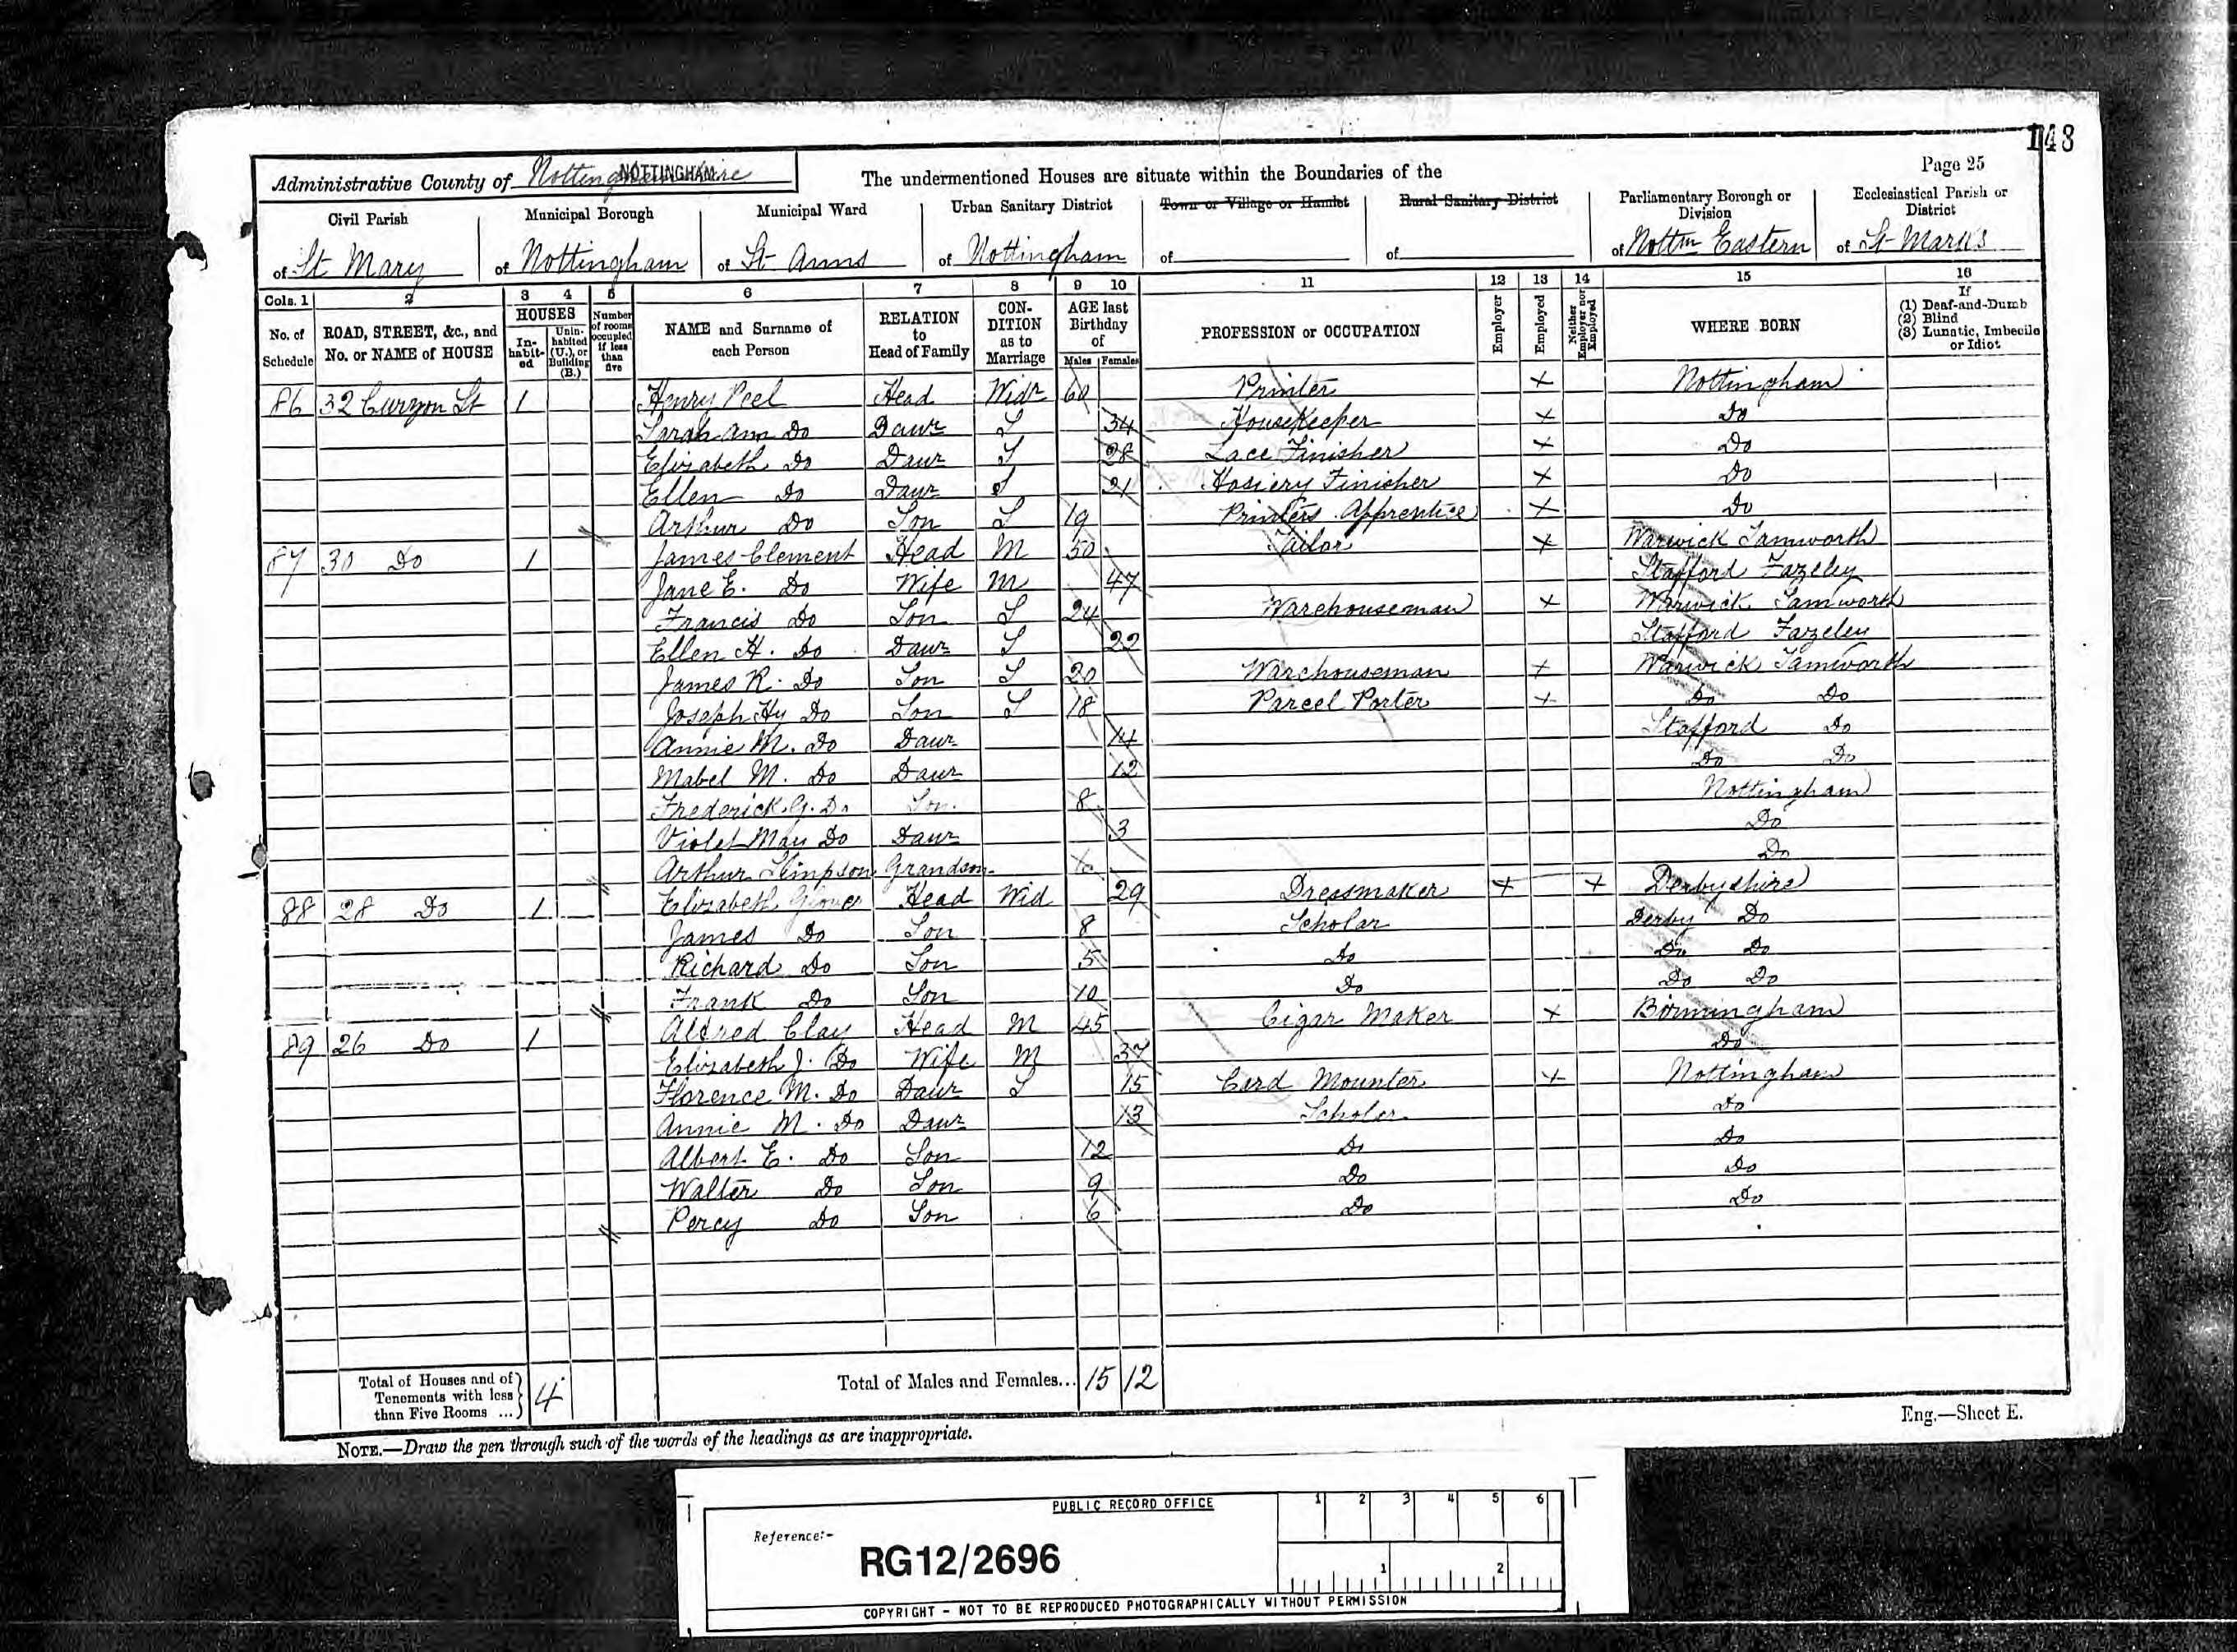 148
Page 25
Administrative County of Nottinghamshire NOTTINGHAM
The undermentioned Houses are situate within the Boundaries of the
Civil Parish of St Mary
Municipal Borough of Nottingham
Municipal Ward of St Anns
Urban Sanitary District of Nottingham
Town or Village or Hamlet of
Rural Sanitary District of
Parliamentary Borough or Division of Nottm Eastern
Ecclesiastical Parish or District of St Mark's
Cols. 1 2 3 4 5 6 7 8 9 10 11 12 13 14 15 16
No. of Schedule
ROAD, STREET, &c., and No. or NAME of HOUSE
HOUSES
In-habit-ed
Unin-habited (U.), or Building (B.)
Number of rooms occupied if less than five
NAME and Surname of each Person
RELATION to Head of Family
CON-DITION as to Marriage
AGE last Birthday of
Males Females
PROFESSION or OCCUPATION
Employer
Employed
Neither Employer nor Employed
WHERE BORN
If (1) Deaf-and-Dumb (2) Blind (3) Lunatic, Imbecile or Idiot
86 32 Curzon St 1 Henry Peel Head Widr 60 Printer X Nottingham
Sarah Ann Do Daur S 34 Housekeeper X Do
Elizabeth Do Daur S 28 Lace Finisher X Do
Ellen Do Daur S 21 Hosiery Finisher X Do
Arthur Do Son S 19 Printers Apprentice X Do
87 30 Do 1 James Clement Head M 50 Tailor X Warwick Tamworth
Jane E. Do Wife M 47 Stafford Fazeley
Francis Do Son S 24 Warehouseman X Warwick Tamworth
Ellen H. Do Daur S 22 Stafford Fazeley
James R. Do Son S 20 Warehouseman X Warwick Tamworth
Joseph Hy Do Son S 18 Parcel Porter X Do Do
Annie M. Do Daur 14 Stafford Do
Mabel M. Do Daur 12 Do Do
Frederick G. Do Son 8 Nottingham
Violet May Do Daur 3 Do
Arthur Simpson Grandson Do
88 28 Do 1 Elizabeth Head Wid 29 Dressmaker X X Derbyshire
James Do Son 8 Scholar Derby Do
Richard Do Son 5 Do Do Do
Frank Do Son 10 Do Do Do
89 26 Do 1 Alfred Clay Head M 45 Cigar Maker X Birmingham
Elizabeth J. Do Wife M 37 Do
Florence M. Do Daur S 15 Card Mounter X Nottingham
Annie M. Do Daur 13 Scholar Do
Albert E. Do Son 12 Do Do
Walter Do Son 9 Do Do
Percy Do Son 6 Do Do
Total of Houses and of Tenements with less than Five Rooms ... 4
Total of Males and Females... 15 12
Eng.—Sheet E.
NOTE.—Draw the pen through such of the words of the headings as are inappropriate.
PUBLIC RECORD OFFICE
1 2 3 4 5 6
Reference:-
RG12/2696
1 2
COPYRIGHT - NOT TO BE REPRODUCED PHOTOGRAPHICALLY WITHOUT PERMISSION